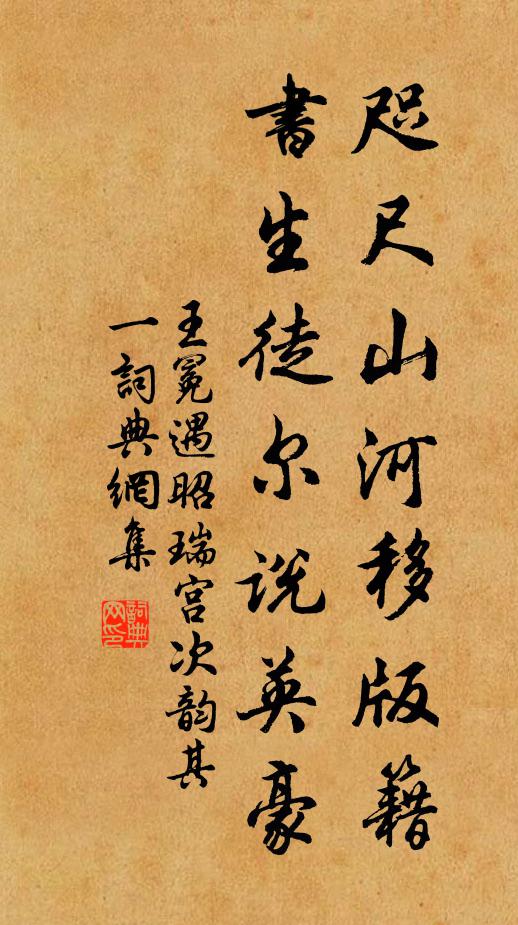 咫尺山河移版籍
書生徒尔说英豪
王冕遇昭瑞宫次韵其
一詞典網集
詞典網印